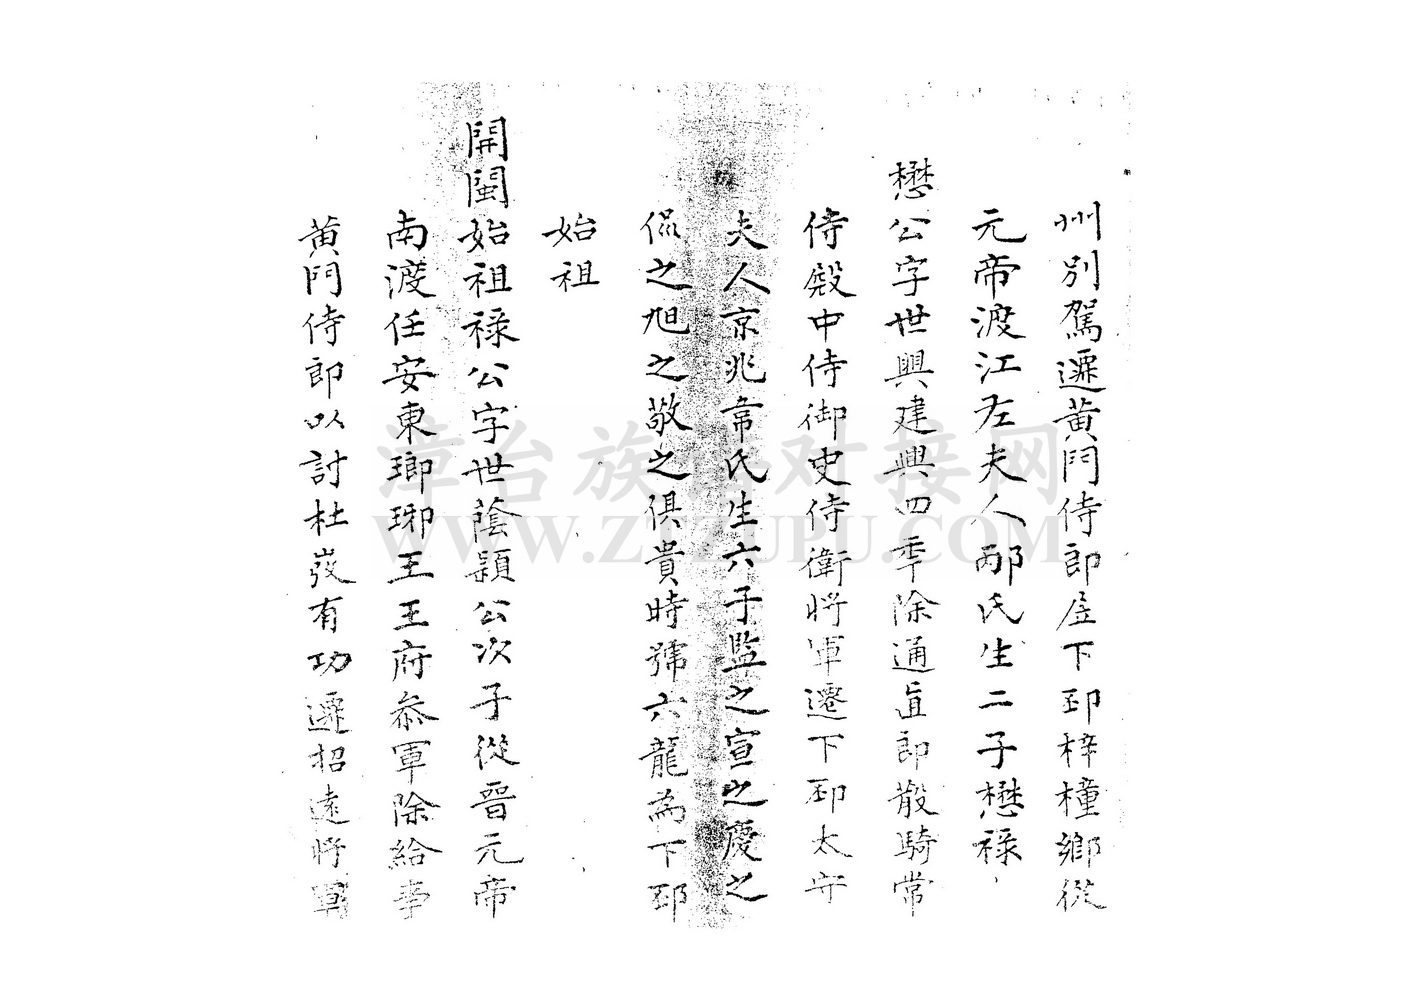 州別駕遷黃門侍郎居下邳梓橦鄉從
元帝渡江左夫人邴氏生二子懋祿
懋公字世興建興四年除通直郎散騎常
侍殿中侍御史侍衛將軍遷下邳太守
夫人京兆韋氏生六子監之宣之慶之
侃之旭之敬之俱貴時號六龍為下邳
始祖
開閩始祖祿公字世蔭穎公次子從晉元帝
南渡任安東瑯琊王王府叅軍除給事
黃門侍郎以討杜弢有功遷招遠將軍
漳台族谱对接网
WWW.ZTZUPU.COM